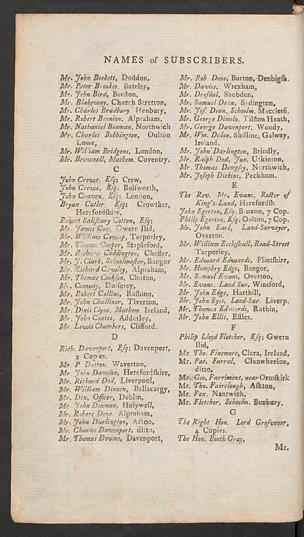 NAMES of SUBSCRIBERS.
Mr. John Beckett, Duddon,
Mr. Peter Brookes, Buteley,
Mr. John Bird, Beeston,
Mr. Blakeway, Church Stretton,
Mr. Charles Bradbury Henbury,
Mr. Robert Brenion, Alpraham,
Mr. Nathaniel Beeman, Northwich
Mr. Charles Bebbington, Oulton
Lowe,
Mr. William Bridgens, London,
Mr. Brownell, Mathem. Coventry.
C
John Crewe, Esq; Crew,
John Crewe, Esq; Bolsworth,
John Craven, Esq; London,
Bryan Cutler Esq; Crowther,
Herefordshire,
Robert Salisbury Cotton, Esq;
Mr. James Cary, Gwern Ilid,
Mr. William Conway, Tarporley,
Mr. Thomas Cooper, Stapleford,
Mr. Richard Coddington, Chester,
Mr. J. Clark, Schoolmaster, Bangor
Mr. Richard Cowley, Alpraham,
Mr. Thomas Cookson, Clotton,
Mr. Conway, Doiserey,
Mr. Robert Collins, Rushton,
Mr. John Challinor, Tiverton,
Mr. Denis Clyne, Mathem Ireland,
Mr. John Coates, Adderley,
Mr. Lewis Chambers, Clifford.
D
Rich. Davenport, Esq; Davenport,
2 Copies.
Mr. P Dutton, Waverton,
Mr. John Dawson, Herefordshire,
Mr. Richard Dod, Liverpool,
Mr. William Dinnen, Ballacargy,
Mr. Din, Officer, Dublin,
Mr. John Denman, Holywell,
Mr. Robert Done, Alpraham,
Mr. John Darlington, Aston,
Mr. Charles Davenport, ditto,
Mr. Thomas Downs, Davenport,
Mr. Rob. Done, Burton, Denbigsh.
Mr. Davies, Wrexham,
Mr. Dresdal, Shobden,
Mr. Samuel Dean, Sydington,
Mr. Jos. Dean, Schoolm. Macclesf.
Mr. George Dimelo, Tilston Heath,
Mr. George Davenport, Woody,
Mr. Wm. Dillon, Skilline, Galway,
Ireland.
Mr. John Darlington, Brindly,
Mr. Ralph Dod, Jun. Utkinion,
Mr. Thomas Dempsy, Northwich,
Mr. Joseph Dickins, Peckham.
E
The Rev. Mr. Evans, Rector of
King's-Land, Herefordsh
John Egerton, Esq; Broxton, 7 Cop.
Philip Egerton, Esq; Oulton, 7 Cop.
Mr. John Earl, Land-Surveyor,
Overton.
Mr. William Eccleshall, Road-Street
Tarporley,
Mr. Edward Edwards, Flintshire,
Mr. Humphry Edge, Bangor,
Mr. Samuel Evans, Overton,
Mr. Evans, Land Sur. Winsford,
Mr. John Edge, Harthill,
Mr. John Eyes, Land-Sur. Liverp.
Mr. Thomas Edwards, Ruthin,
Mr. John Ellis, Eccles.
F
Philip Lloyd Fletcher, Esq; Gwern
Ilid,
Mr. Tho. Finemore, Clara, Ireland,
Mr. Pat. Farral, Clunwheelon,
ditto,
Mr. Geo, Farriment, near Ormskirk
Mr. Tho. Fairclough, Ashton,
Mr. Fox, Nantwich,
Mr. Fletcher, Schoolm. Bunbury.
G
The Right Hon. Lord Grosvenor,
4 Copies.
The Hon. Booth Gray,
Mr.